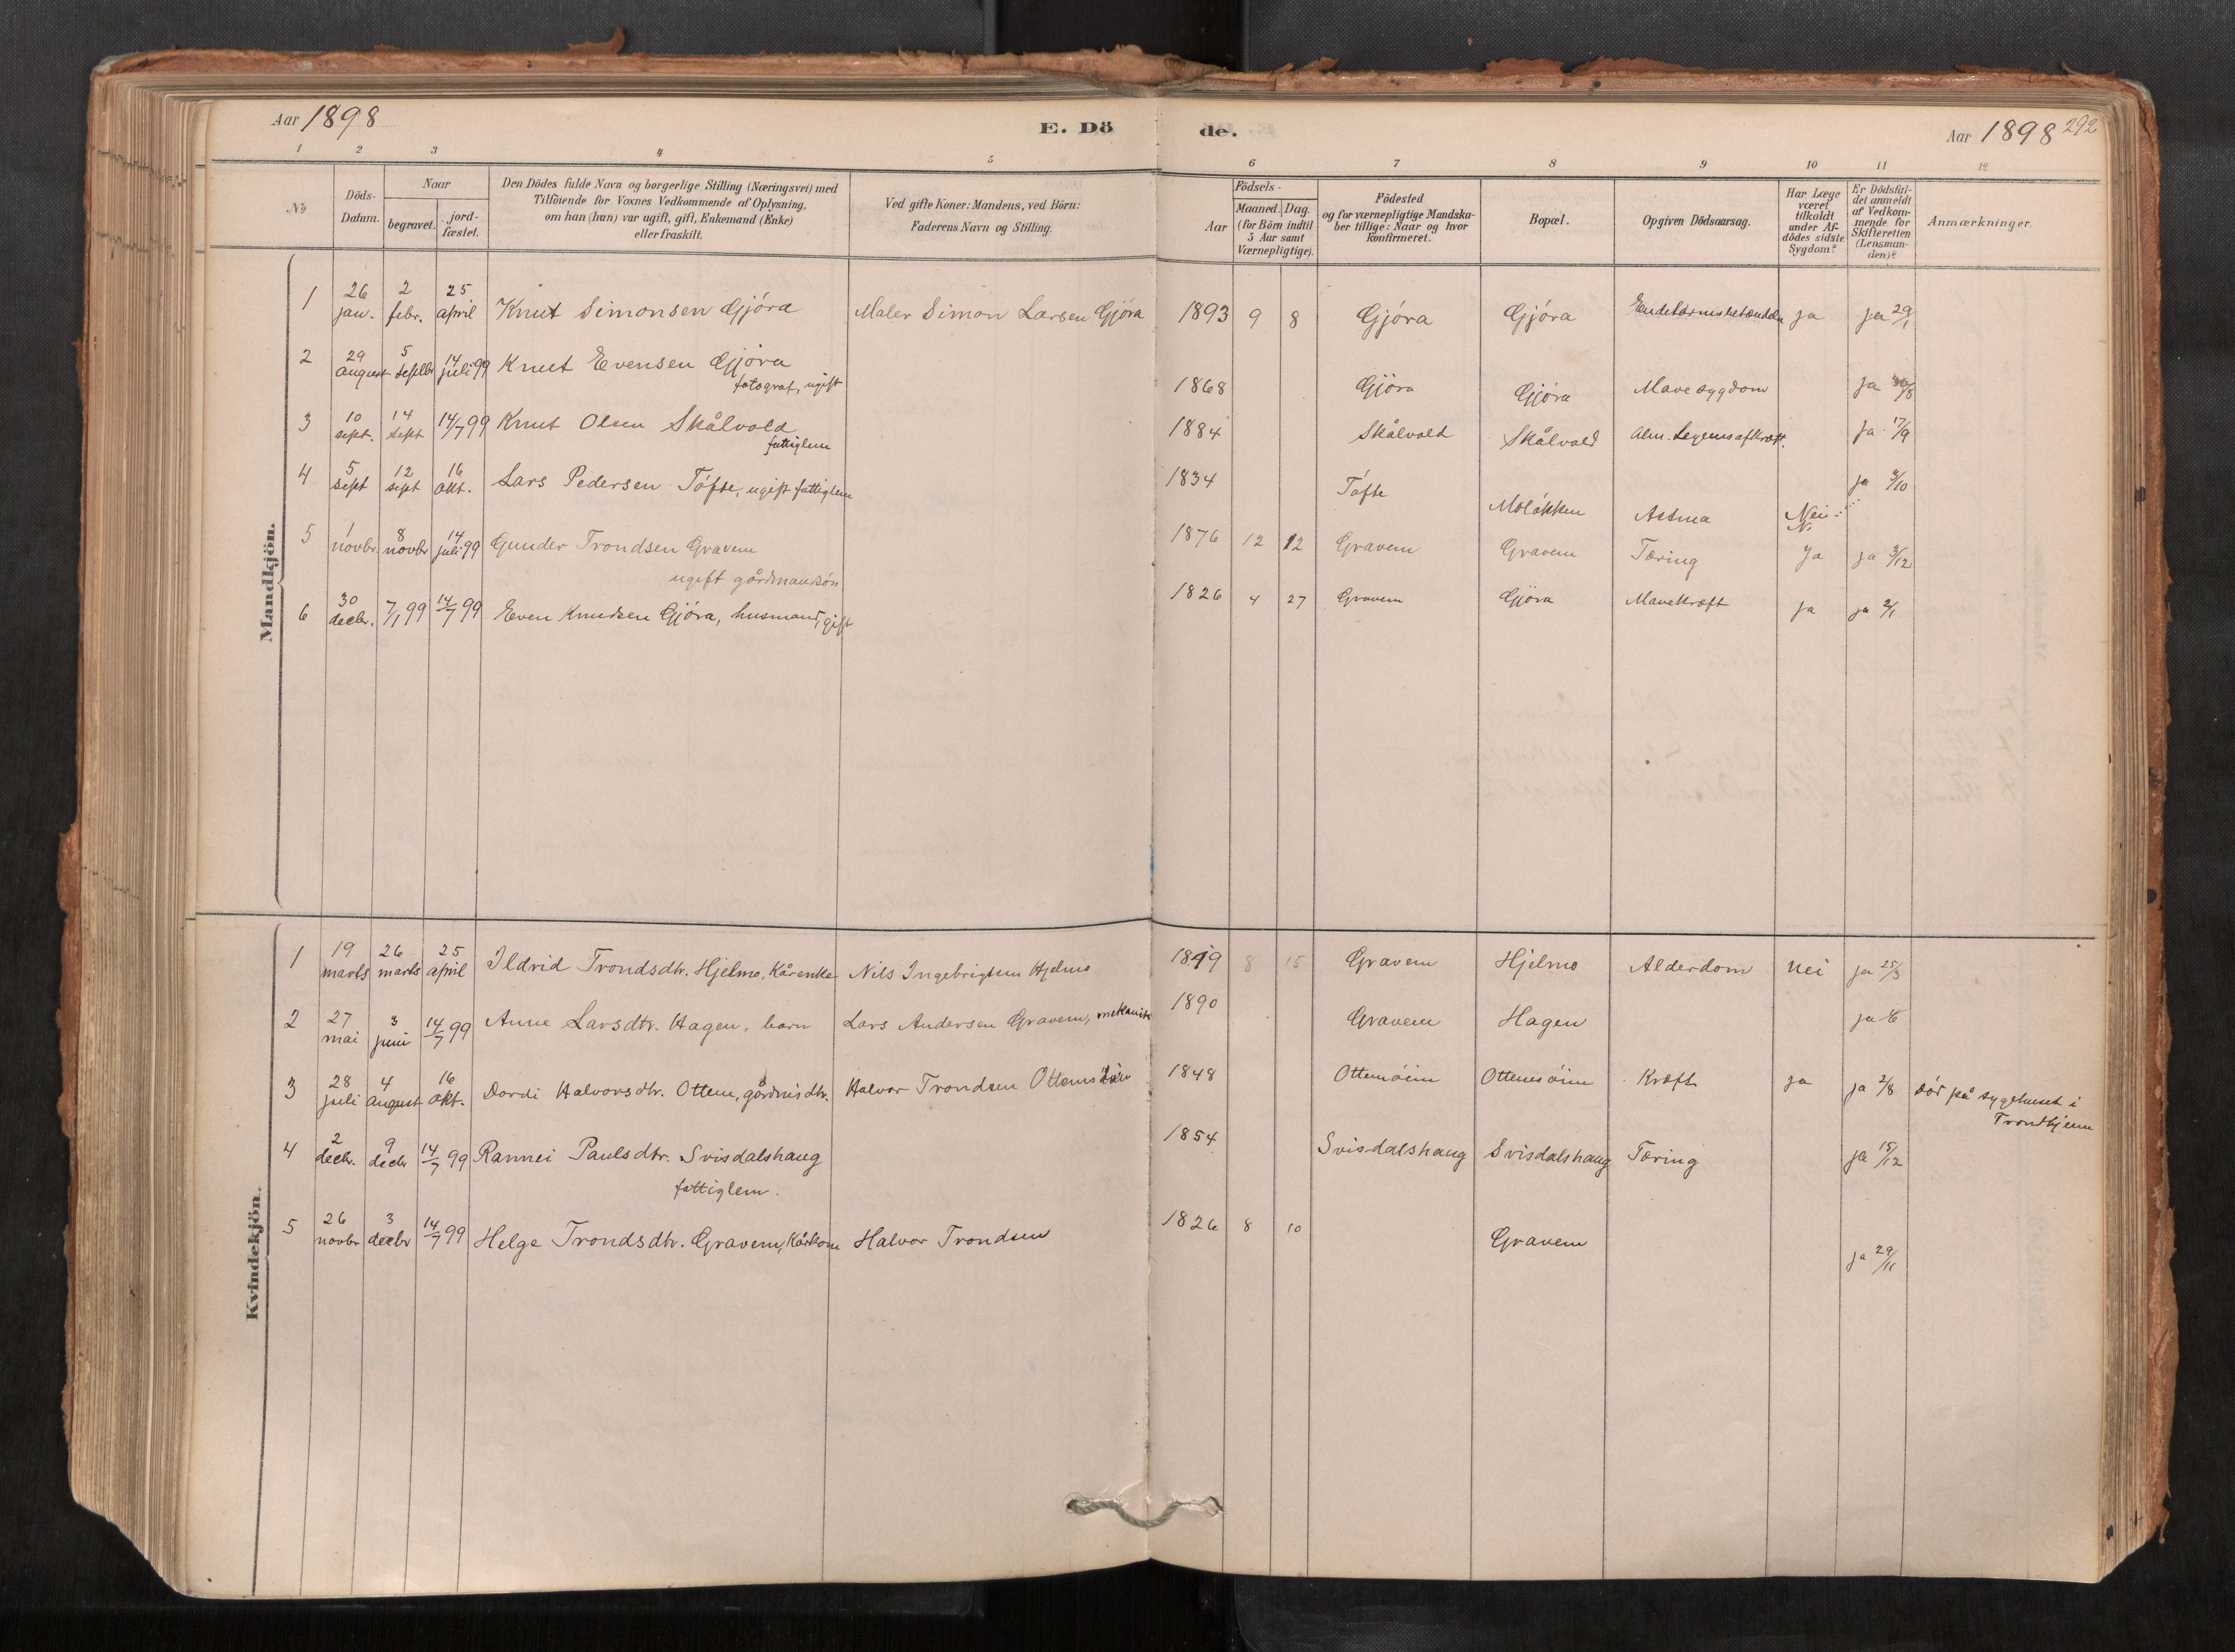 Aar 1898
E. Dö
de.
Aar 1898
292
1 2 3 4 5 6 7 8 9 10 11 12
No
Döds-
Datum.
Naar
begravet.
jord-
fæstet.
Den Dödes fulde Navn og borgerlige Stilling (Næringsvei) med
Tilföiende for Voxnes Vedkommende af Oplysning,
om han (hun) var ugift, gift, Enkemand (Enke)
eller fraskilt.
Ved gifte Koner: Mandens, ved Börn:
Faderens Navn og Stilling.
Födsels-
Aar
Maaned. Dag.
(for Börn indtil
5 Aar samt
Værnepligtige).
Födested
og for værnepligtige Mandska-
ber tillige: Naar og hvor
konfirmeret.
Bopæl.
Opgiven Dödsaarsag.
Har Læge
været
tilkaldt
under Af-
dödes sidste
Sygdom?
Er Dödsfal-
det anmeldt
af Vedkom-
mende for
Skifteretten
(Lensman-
den)?
Anmærkninger.
Mandkjön.
1 26 jan. 2 febr. 25 april Knut Simonsen Gjóra Maler Simon Larsen Gjóra 1893 9 8 Gjóra Gjóra ja ja 29/1
2 29 august 5 septbr 14 juli 99 Knut Evensen Gjóra
fotograf, ugift 1868 Gjóra Gjóra Mavesygdom ja
3 10 sept. 14 sept 14/7 99 Knut Olsen Skålvold
fattiglem 1884 Skålvold Skålvold Alm. Legemsafkræft. ja 17/9
4 5 sept 12 sept 16 okt. Lars Pedersen Tófte, ugift fattiglem 1834 Tófte Moløkken Astma Nei ja 3/10
5 1 novbr. 8 novbr 14 juli 99 Gunder Trondsen Gravem
ugift gårdmandsón 1876 12 12 Gravem Gravem Tæring Ja ja 3/12
6 30 decbr. 7/1 99 14/7 99 Even Knudsen Gjóra, husmand, gift 1826 4 27 Gravem Gjóra Mavekræft ja ja 2/1
Kvindekjön.
1 19 marts 26 marts 25 april Ildrid Trondsdtr. Hjelmo, Kårenke Nils Ingebrigtsen Hjelmo 1819 8 15 Gravem Hjelmo Alderdom nei ja 25/3
2 27 mai 3 juni 14/7 99 Anne Larsdtr. Hagen, barn Lars Andersen Gravem, mekanik 1890 Gravem Hagen ja
3 28 juli 4 august 16 okt. Dordi Halvorsdtr. Ottem, gårdmsdtr. Halvor Trondsen Ottemsóien 1848 Ottemsóien Ottemsóien Kræft ja ja 2/8 Dór på sygehuset i
Trondhjem
4 2 decbr. 9 decbr 14/7 99 Rannei Paulsdtr. Svisdalshaug
fattiglem. 1854 Svisdalshaug Svisdalshaug Tæring ja 15/12
5 26 novbr 3 decbr 14/7 99 Helge Trondsdtr. Gravem, Kårkone Halvor Trondsen 1826 8 10 Gravem ja 29/11